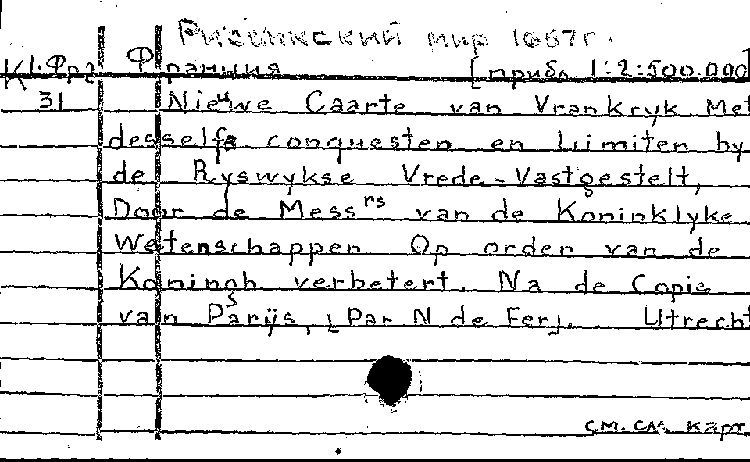 Рисвикский мир 1667г.
К1.Фра Франция [прибл 1:2:500.000]
31 Nieuwe Caarte van Vrankryk Met
desselfs conquesten en Limiten by
de Ryswykse Vrede-Vastgestelt,
Door de Messrs van de Koninklyke
Wetenschappen Op order van de
Koningh verbetert. Na de Copie
van Parijs, [Par N de Fer]. Utrecht
см. сл. карт